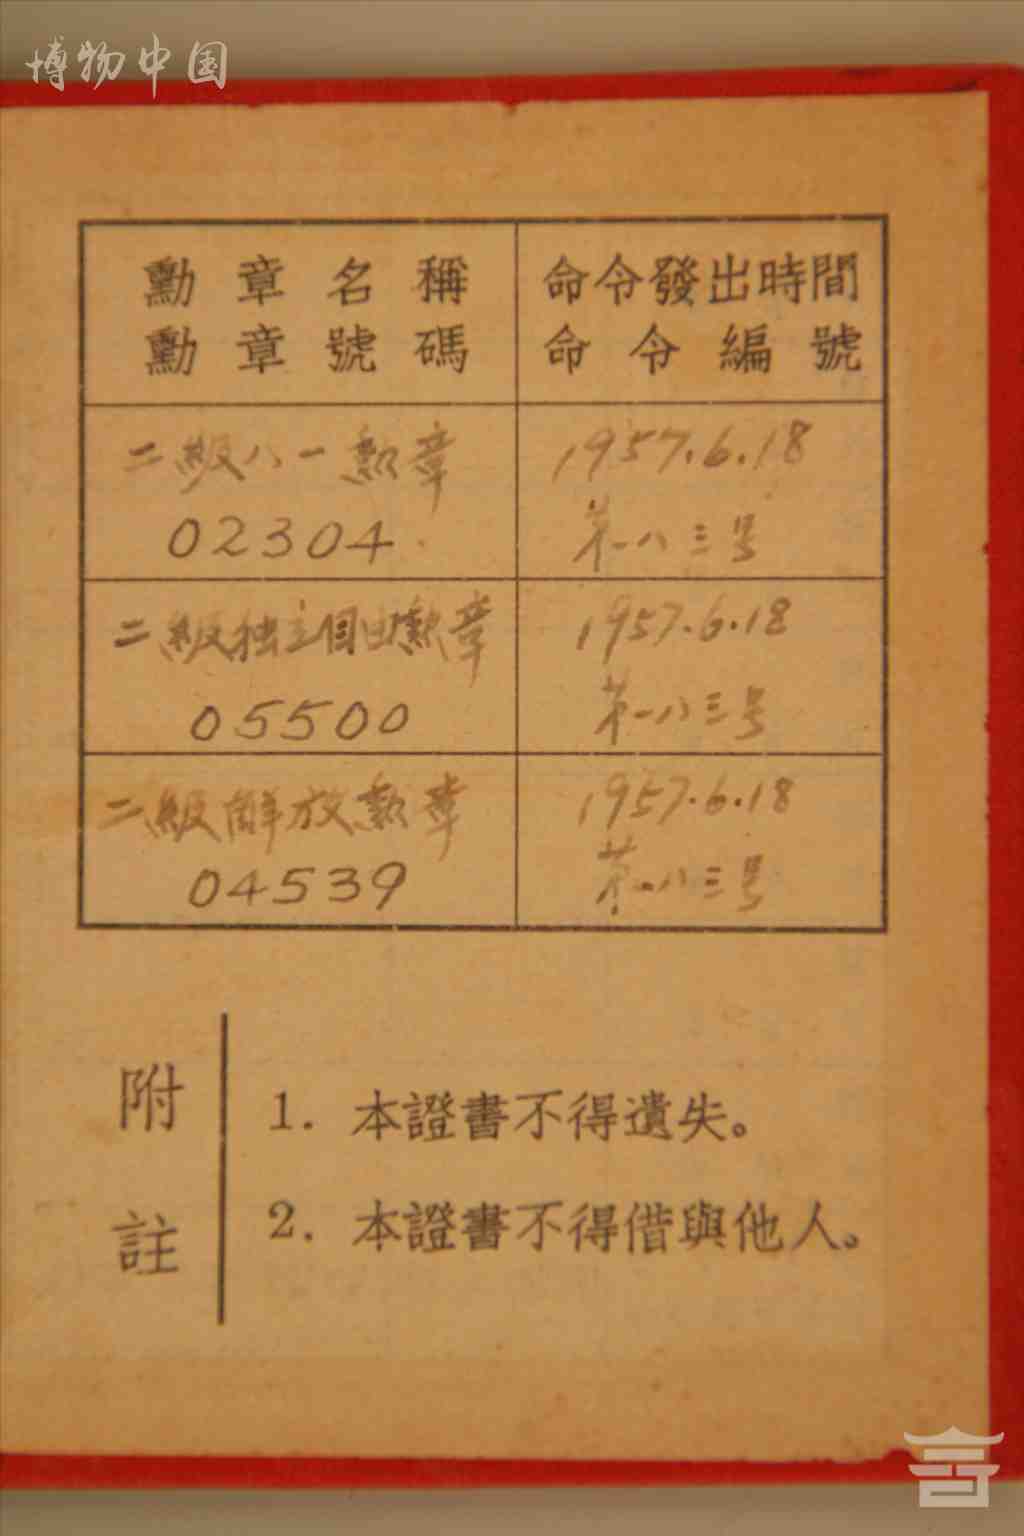 博物中国
勳章名稱
勳章號碼
命令發出時間
命令編號
二級八一勲章
02304
1957.6.18
第一八三号
二級独立自由勲章
05500
1957.6.18
第一八三号
二級解放勲章
04539
1957.6.18
第一八三号
附註
1. 本證書不得遺失。
2. 本證書不得借與他人。